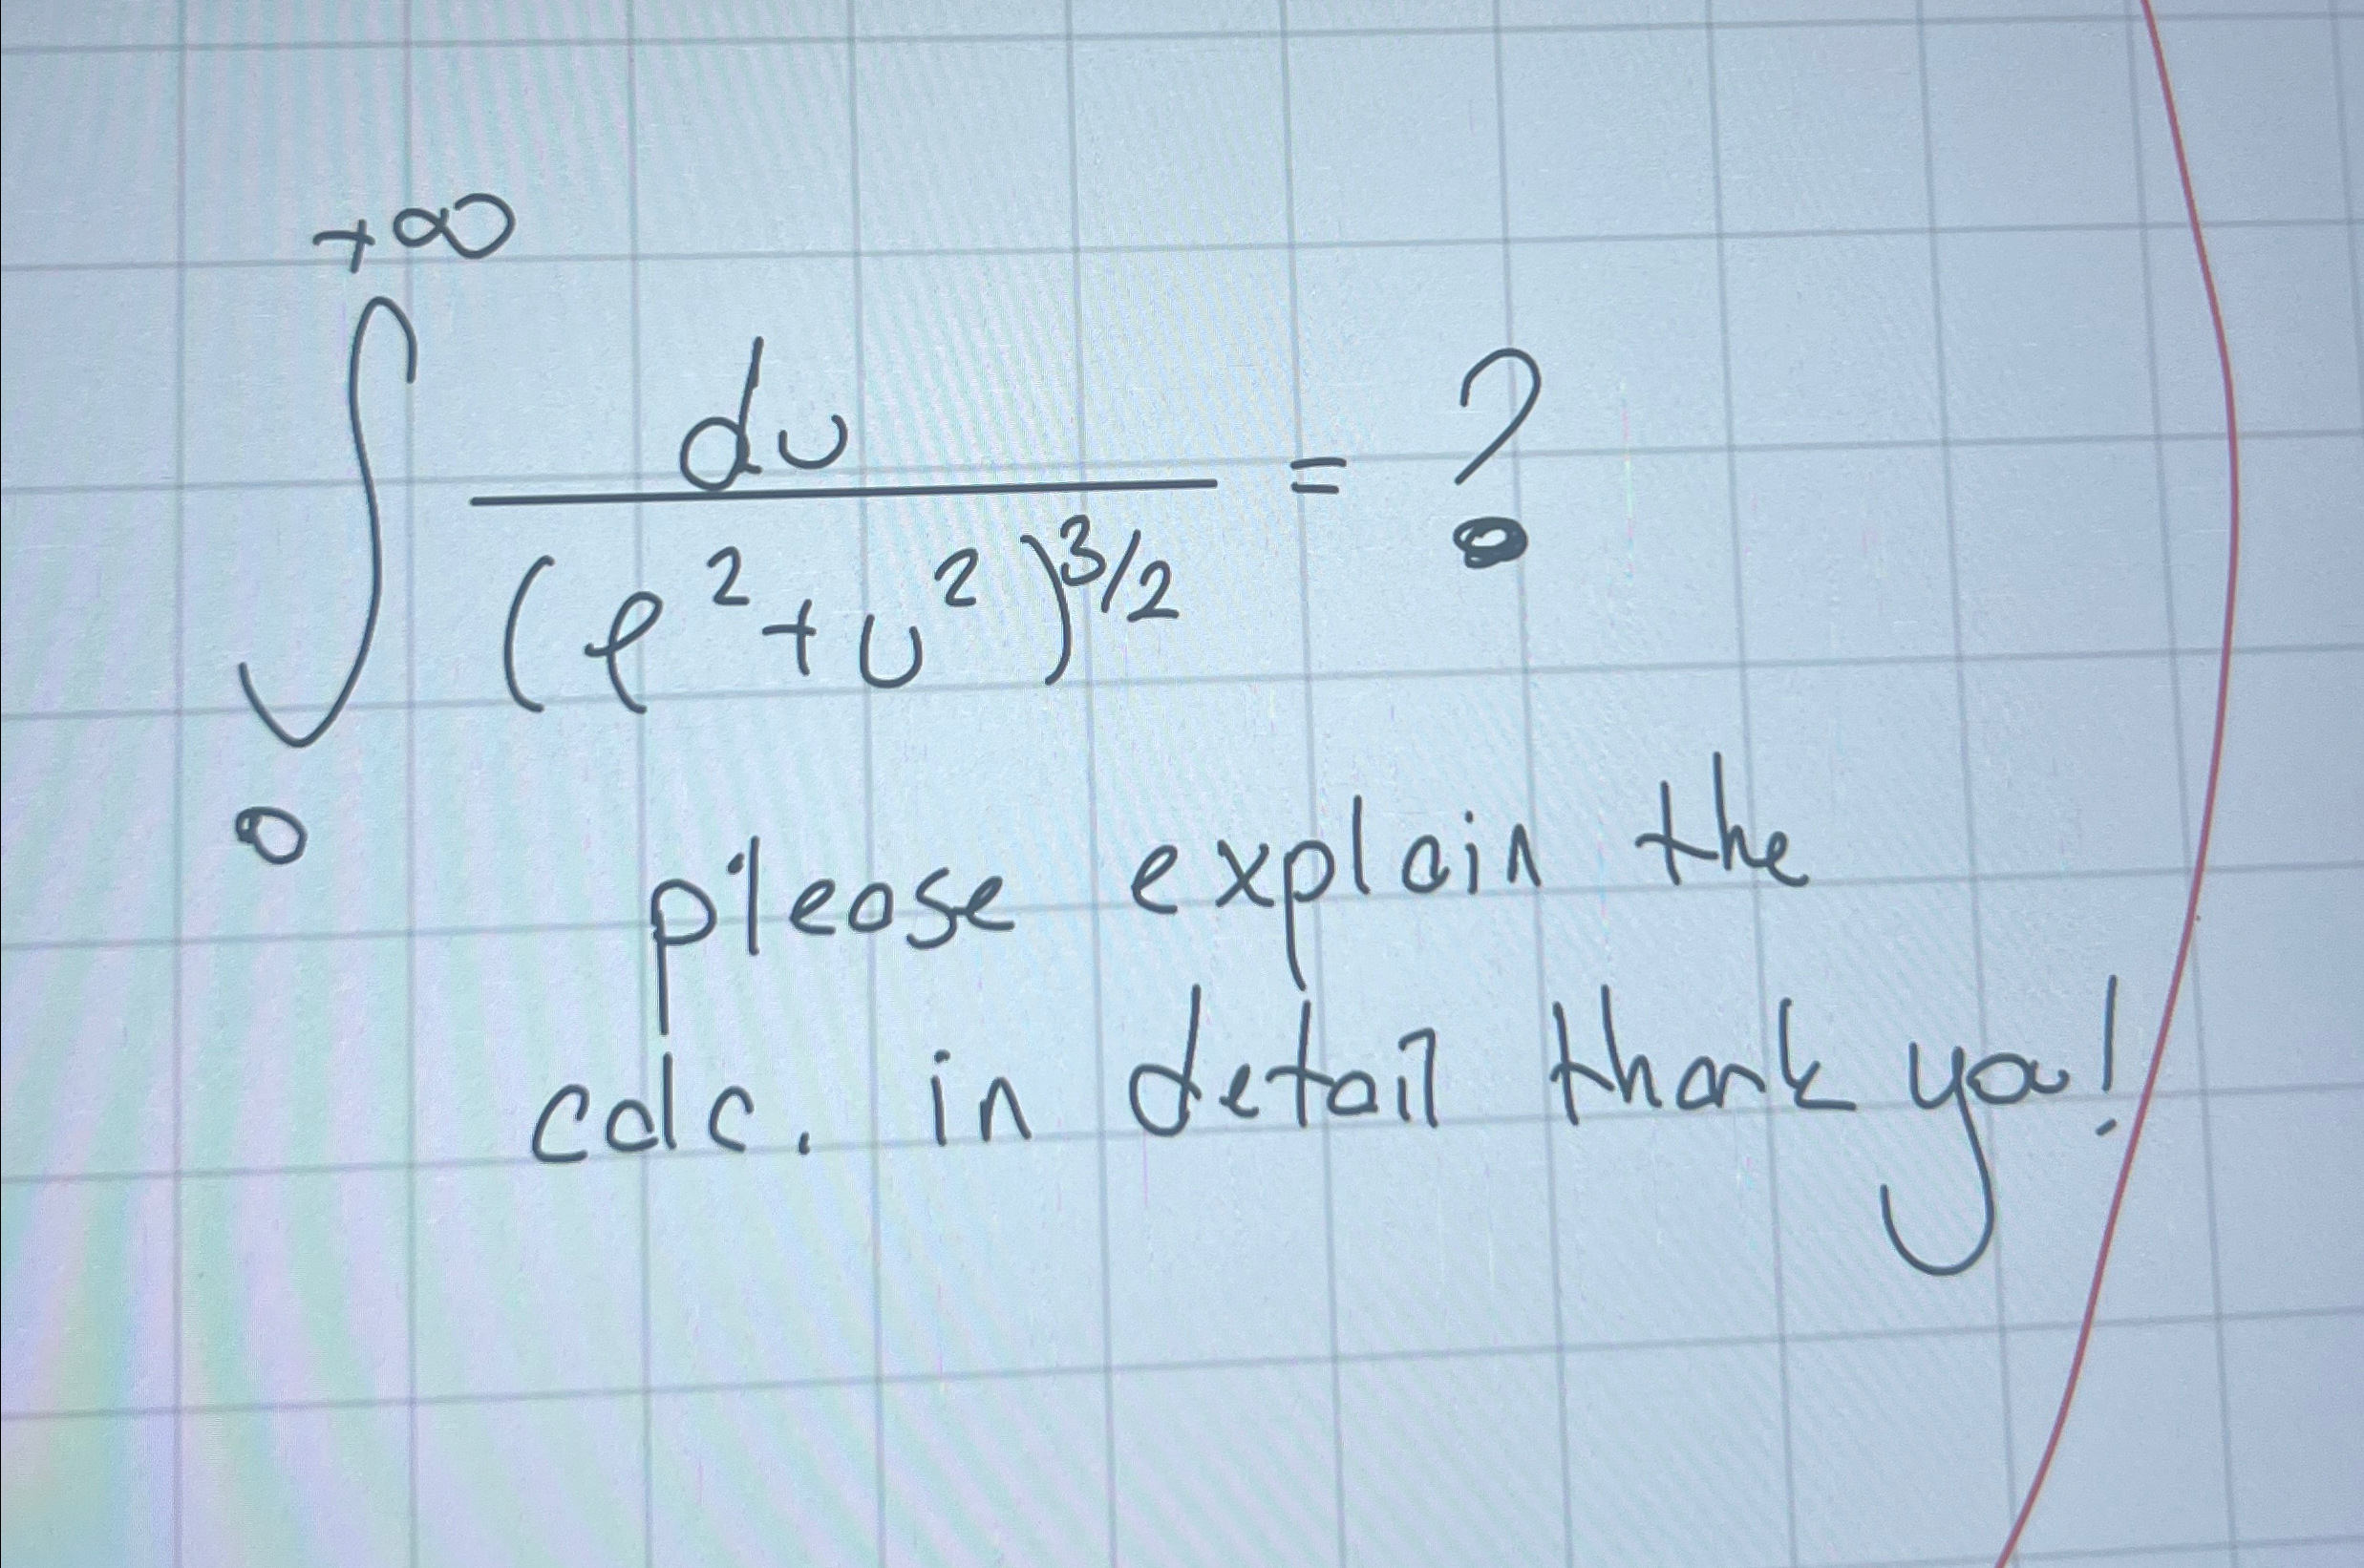 +∞
∫ du / (ℓ² + u²)^3/2 = ?
0
please explain the
calc. in detail thank you!